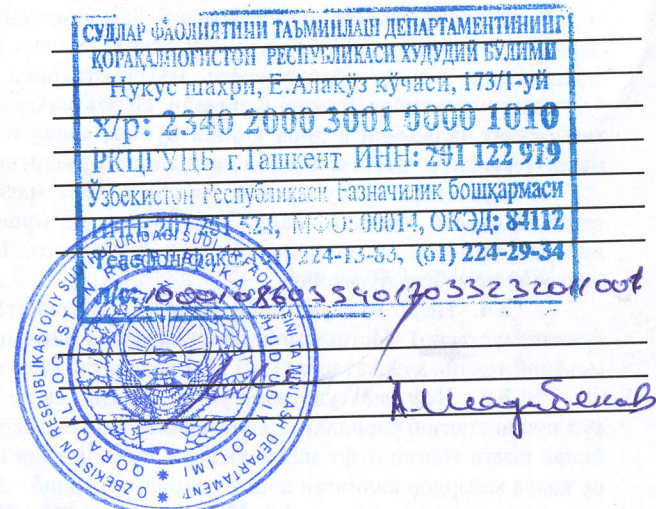 СУДЛАР ФАОЛИЯТИНИ ТАЪМИНЛАШ ДЕПАРТАМЕНТИНИНГ
ҚОРАҚАЛПОҒИСТОН РЕСПУБЛИКАСИ ҲУДУДИЙ БЎЛИМИ
Нукус шаҳри, Е.Алакўз кўчаси, 173/1-уй
х/р: 2340 2000 3001 0000 1010
РКЦ ГУ ЦБ г.Ташкент ИНН: 201 122 919
Ўзбекистон Республикаси Ғазначилик бошқармаси
ИНН: 201 524, МФО: 00014, ОКЭД: 84112
Телефон/факс: (61) 224-13-83, (61) 224-29-34
л/с:
O'ZBEKISTON RESPUBLIKASI OLIY SUDI HUZURIDAGI SUDLAR FAOLIYATINI TA'MINLASH DEPARTAMENTI
QORAQALPOG'ISTON RESPUBLIKASI HUDUDIY BO'LIMI